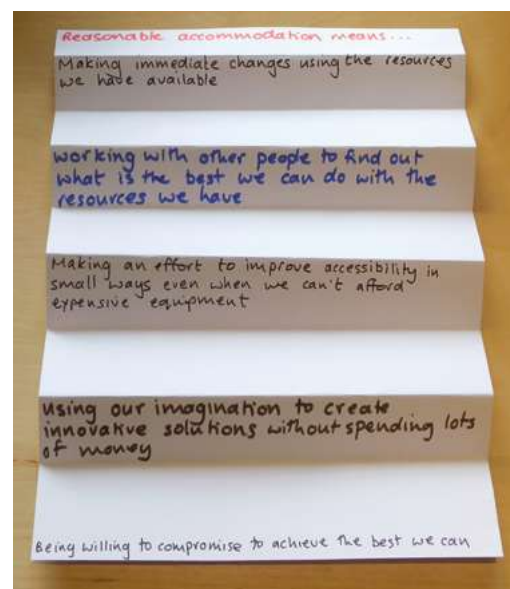 Reasonable accommodation means...
Making immediate changes using the resources
we have available
working with other people to find out
what is the best we can do with the
resources we have
Making an effort to improve accessibility in
small ways even when we can't afford
expensive equipment
using our imagination to create
innovative solutions without spending lots
of money
Being willing to compromise to achieve the best we can